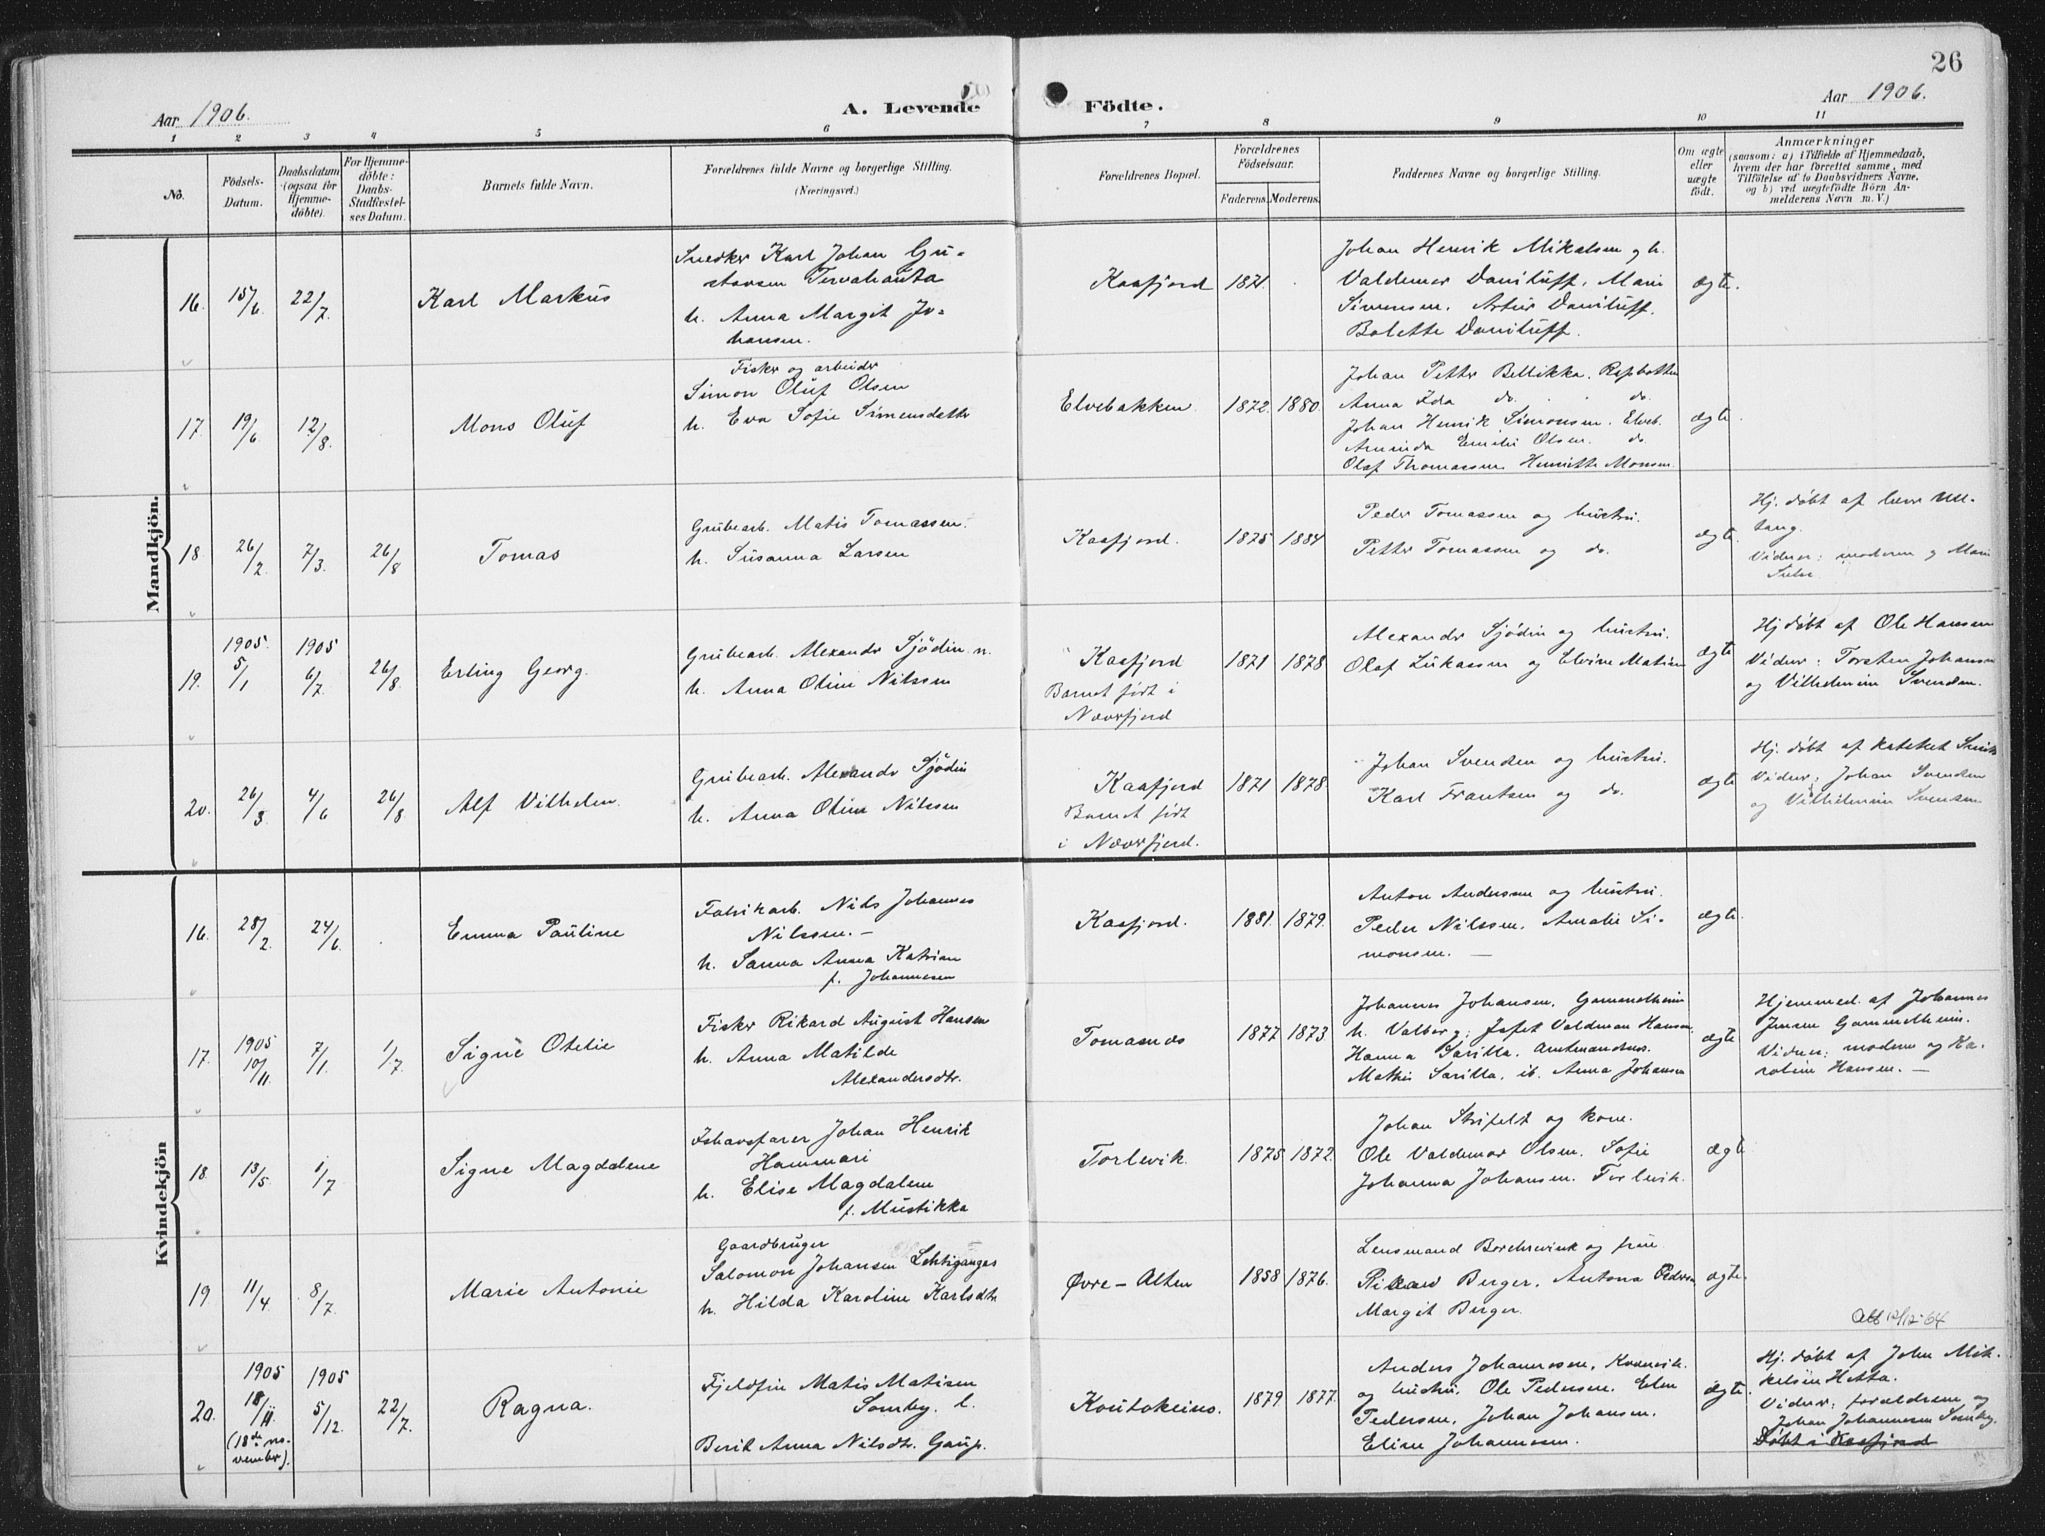 26
Aar 1906.
A. Levende Födte.
Aar 1906.
1 2 3 4 5 6 7 8 9 10 11
No.
Födsels-
Datum.
Daabsdatum
(ogsaa for
Hjemme-
döbte).
For Hjemme-
döbte:
Daabs-
Stadfæstel-
ses Datum.
Barnets fulde Navn.
Forældrenes fulde Navne og borgerlige Stilling.
(Næringsvei.)
Forældrenes Bopæl.
Forældrenes
Födselsaar.
Faderens. Moderens.
Faddernes Navne og borgerlige Stilling.
Om ægte
eller
uægte
födt.
Anmærkninger
(saasom: a) i Tilfælde af Hjemmedaab,
hvem der har forrettet samme, med
Tilföielse af to Daabsvidners Navne,
og b) ved uægtefödte Börn An-
melderens Navn m. V.)
Mandkjön.
16. 15/6 22/7. Karl Markus
Snedker Karl Johan Gu-
stavsen Tervahauta
h. Anna Margit Jo-
hansen.
Kaafjord 1871.
Johan Henrik Mikalsen og h.
Valdemar Daniluff, Marie
Simonsen, Artur Daniluff,
Bolette Daniluff.
ægte.
17. 19/6 12/8. Mons Oluf
Fisker og arbeider
Simon Oluf Olsen
h. Eva Sofie Simensdatter
Elvebakken. 1872. 1880.
Johan Petter Bellikka, Rafsbotten
Anna Ida do. do.
Johan Henrik Simonsen, Elveb.
Aminda Emilie Olsen. do
Olaf Thomassen Henrikke Monsen.
ægte.
18 26/2 7/3. 26/8 Tomas
Grubearb. Matis Tomassen.
h. Susanna Larsen
Kaafjord. 1875 1884
Peder Tomassen og hustru.
Petter Tomassen og do.
ægte.
Hj. döbt af herre Ul-
tang.
Vidner: moderen og Marie
19. 1905. 5/1 1905 6/7. 26/8. Erling Georg.
Grubearb. Alexander Sjödin
h. Anna Otine Nilssen
Kaafjord
Barnet født i
Naverfjord
1871 1878
Alexander Sjödin og hustru.
Olaf Lukassen og Elvine Matisen
ægte
Hj döbt af Ole Hansen
Vidner: Torsten Johansen
og Vilhelmine Svendsen.
20. 26/3 4/6 26/8 Alf Vilhelm.
Grubearb. Alexander Sjödin
h. Anna Otine Nilssen
Kaafjord
Barnet født
i Naverfjord.
1871 1878.
Johan Svendsen og hustru.
Karl Frantsen og do.
ægte
Hj. döbt af kateket
Vidner: Johan Svendsen
og Vilhelmine Svendsen
Kvindekjön
16. 28/2. 24/6. Emma Pauline
Fabrikarb. Nils Johannes
Nilssen. –
h. Sanna Anna Katrine
f. Johannesen
Kaafjord. 1881. 1879.
Anton Andersen og hustru.
Peder Nilssen. Amalie Si-
monsen. –
ægte.
17. 1905 10/11. 7/1. 1/7. Signe Otelie
Fisker Rikard August Hansen
h. Anna Matilde
Alexandersdtr.
Tomasnes 1877 1873.
Johannes Johansen, Gammelheim
h. Valborg; Jafet Valdman Hansen
Hanna Sarilla, Amtmandsnes.
Mathis Sarilla, ib. Anna Johansen
ægte
Hjemmed. af Johannes
Jensen Gammelheim.
Vidner: moderen og Ka-
roline Hansen. –
18. 13/5. 1/7 Signe Magdalene
Ishavsfarer Johan Henrik
Hammari
h. Elise Magdalene
f. Mustikka
Torlevik. 1875 1872.
Johan Strifeldt og kone.
Ole Valdemar Olsen. Sofie
Johanna Johansen. Torlevik.
ægte
19 11/4. 8/7. Marie Antonie
Gaardbruger
Salomon Johansen Lehtiganges
h. Hilda Karoline Karlsdtr
Øvre – Alten 1858 1876.
Lensmand Borchrevink og frue
Rikard Berger, Antona Pedersen
Margit Berger.
ægte.
Att 12/12-64
20. 1905 18/11 (18de no-
vember). 1905 5/12. 22/7. Ragna.
Fjeldfin Matis Matisen
Somby.
Berit Anna Nilsdtr. Gaup.
Koutokeino. 1879 1877.
Anders Johannesen, Kvenvik.
og hustru. Ole Pedersen. Elen
Pedersen, Johan Johansen.
Eline Johannesen.
ægte.
Hj. döbt af John Mik-
kelsen Hætta.
Vidner: forældrene og
Johan Johannesen Somby.
Döbt i Kaafjord